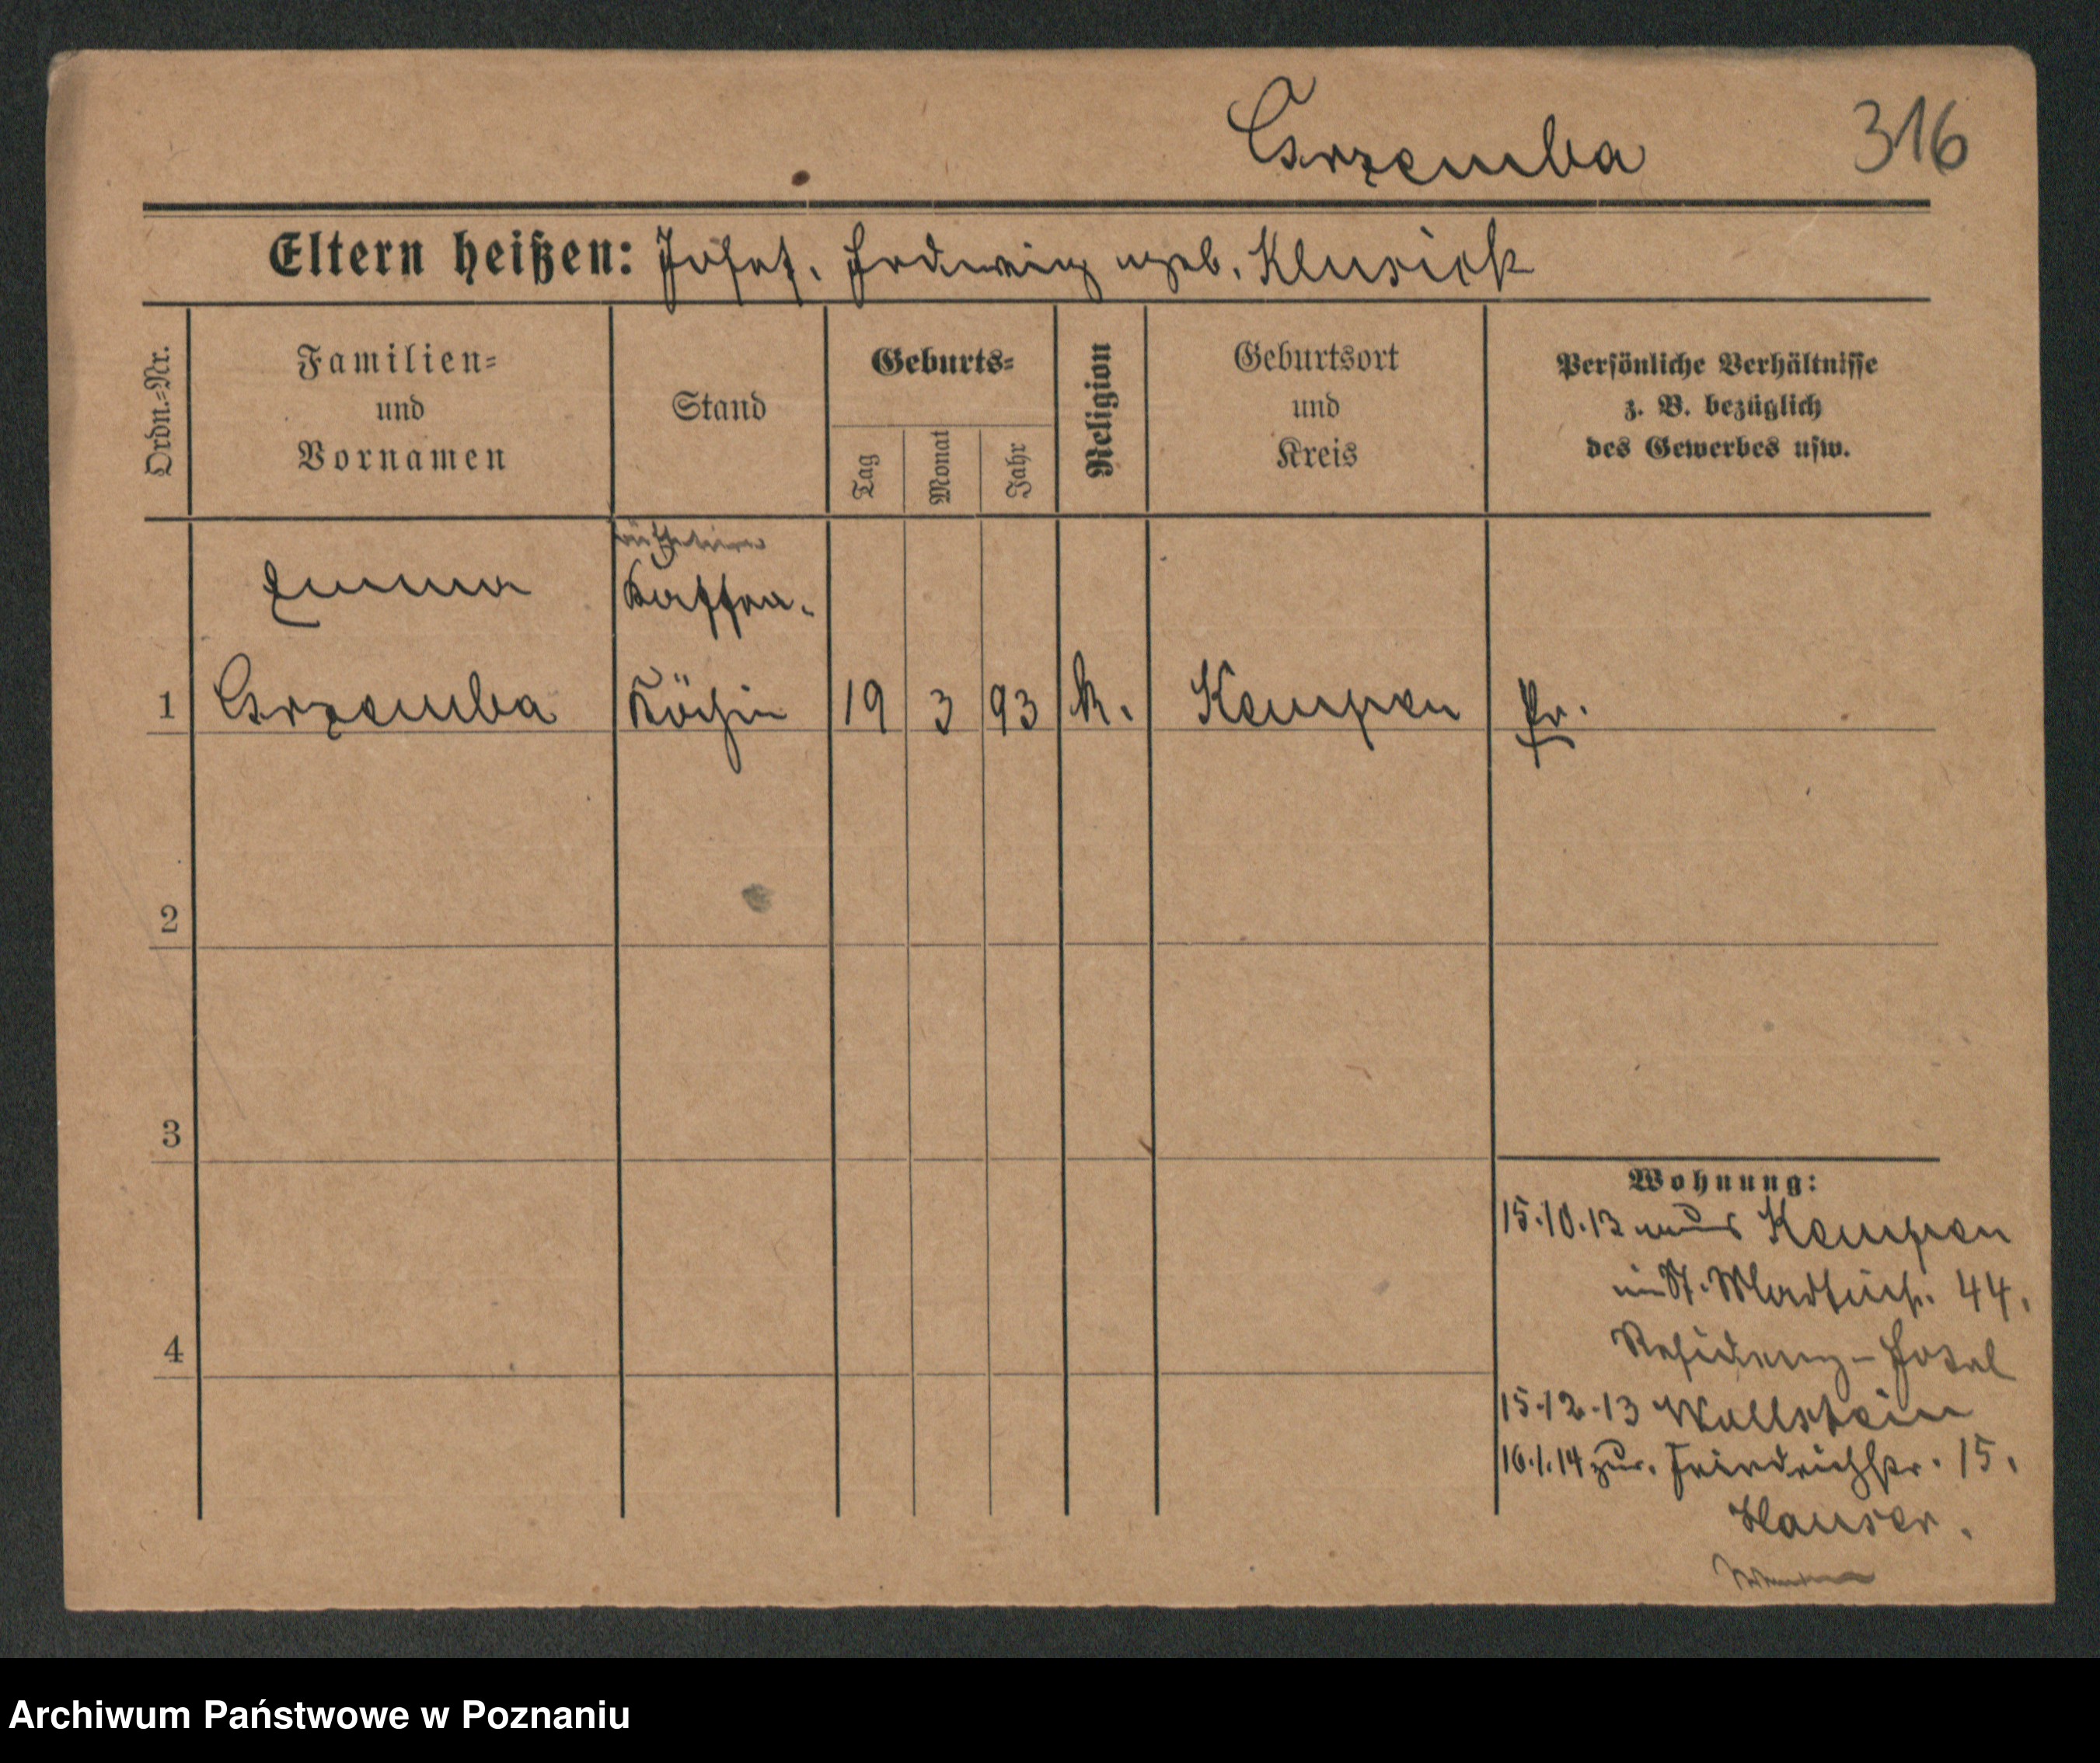 Grzemba 316
Eltern heißen: Josef. Hedwig geb. Klusick
Ordn.=Nr.
Familien=
und
Vornamen
Stand
Geburts=
Tag
Monat
Jahr
Religion
Geburtsort
und
Kreis
Persönliche Verhältnisse
z. B. bezüglich
des Gewerbes usw.
Emma
Kaffee-
1 Grzemba Köchin 19 3 93 k. Kempen Pr.
2
3
4
Wohnung:
15.10.13 aus Kempen
in St. Martinstr. 44.
Residenz-Hotel
15.12.13 Wollstein
16.1.14 zur. Friedrichstr. 15.
Hauser.
Archiwum Państwowe w Poznaniu